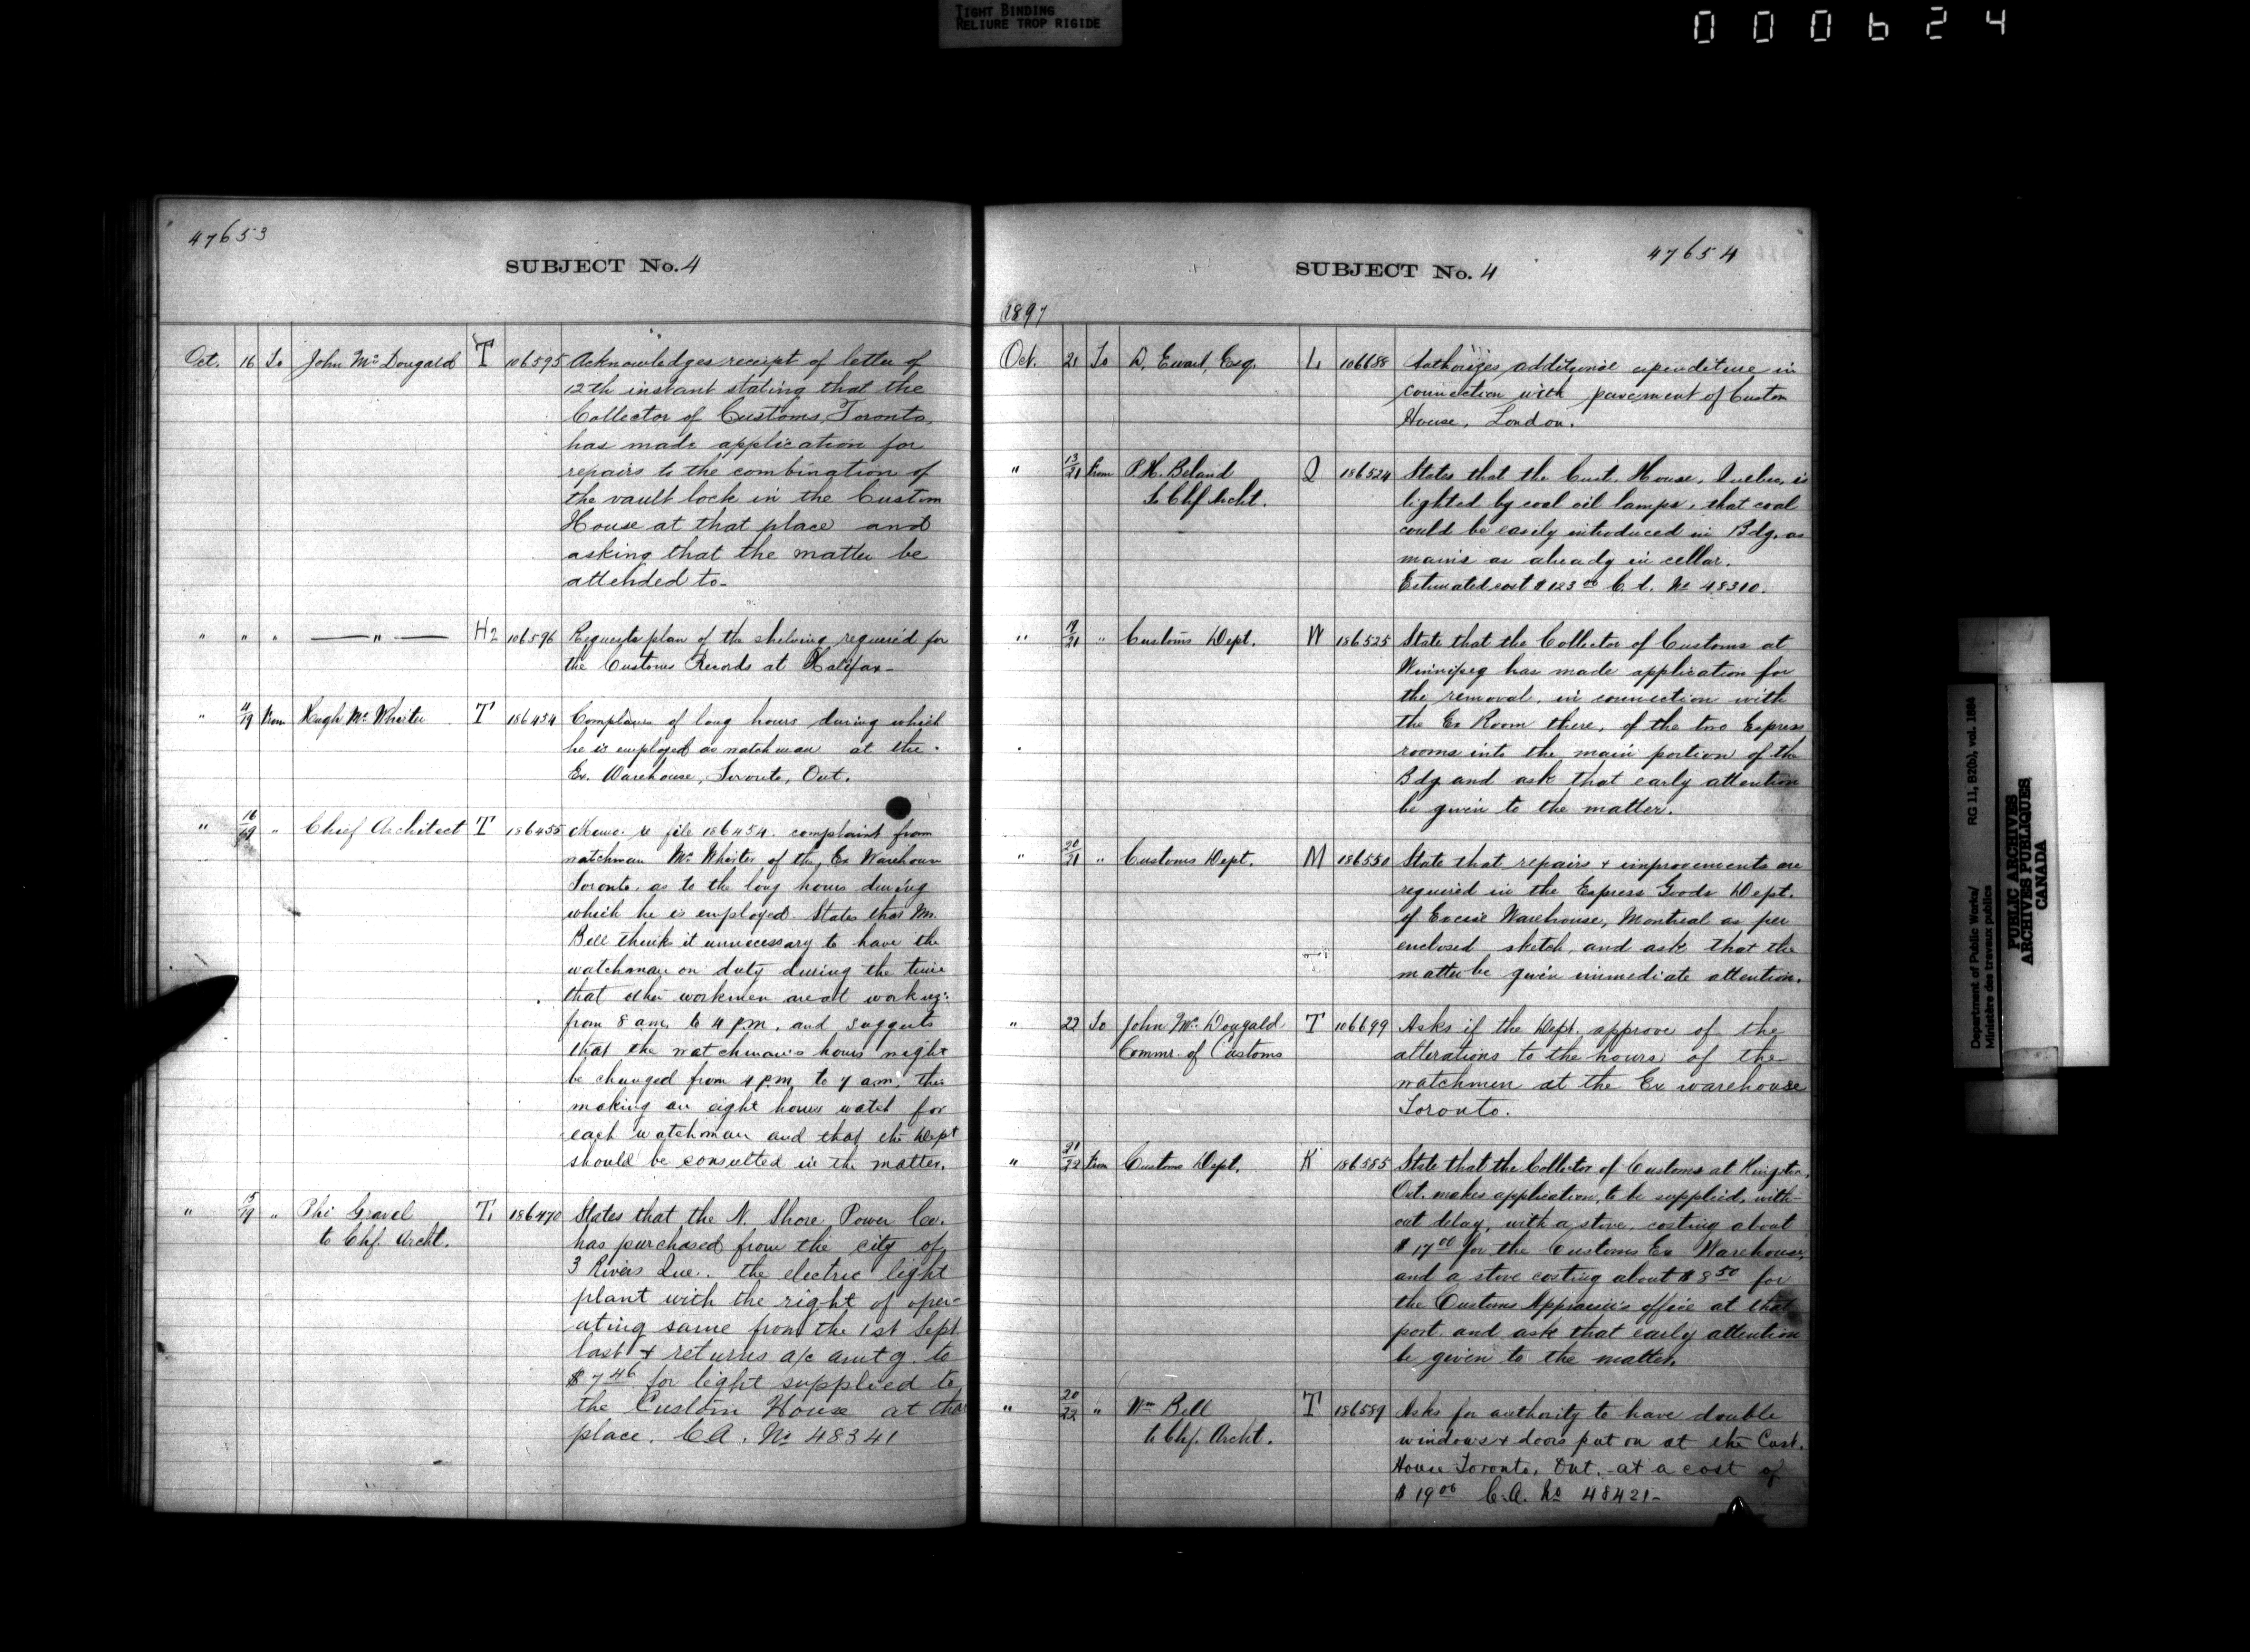 TIGHT BINDING
RELIURE TROP RIGIDE
000624
47653
SUBJECT No. 4
Oct. 16 To John McDougald T 106595 Acknowledges receipt of letter of
12th instant stating that the
Collector of Customs, Toronto,
has made application for
repairs to the combination of
the vault lock in the Custom
House at that place and
asking that the matter be
attended to-
" " " — " — H2 106596 Requests plan of the shelving required for
the Customs Records at Halifax-
" 11/19 From Hugh McWhirter T 186454 Complains of long hours during which
he is employed as watchman at the
Ex. Warehouse, Toronto, Ont.
" 16/19 " Chief Architect T 186455 Memo. re file 186454. complaint from
watchman McWhirter of the Ex Warehouse
Toronto. as to the long hours during
which he is employed. States that Mr.
Bell think it unnecessary to have the
watchman on duty during the time
that other workmen are at work eg:
from 8 am. to 4 p.m. and suggests
that the watchman's hours might
be changed from 4 p.m. to 7 a.m. this
making an eight hours watch for
each watchman and that the Dept
should be consulted in the matter.
" 15/19 " Phi Gravel T. 186470 States that the N. Shore Power Co.
to Chf. Archt. has purchased from the city of
3 Rivers Que. the electric light
plant with the right of oper-
ating same from the 1st Sept.
last & returns a/c amtg. to
$7.46 for light supplied to
the Custom House at that
place. C.A. No 48341
47654
SUBJECT No. 4
1897
Oct. 21 To D. Ewart, Esq. L 106688 Authorizes additional expenditure in
connection with pavement of Custom
House, London.
" 13/21 From P.H. Beland Q 186524 States that the Cust. House, Quebec, is
To Chf Archt. lighted by coal oil lamps, that coal
could be easily introduced in Bdg. as
mains are already in cellar.
Estimated cost $123.00 C.A. No 48310.
" 19/21 " Customs Dept. W 186525 State that the Collector of Customs at
Winnipeg has made application for
the removal, in connection with
the Ex Room there, of the two Express
rooms into the main portion of the
Bdg and ask that early attention
be given to the matter.
" 20/21 " Customs Dept. M 186550 State that repairs & improvements are
required in the Express Goods Dept.
of Excise Warehouse, Montreal as per
enclosed sketch, and ask that the
matter be given immediate attention.
" 22 To John McDougald T 106699 Asks if the Dept. approve of the
Commr. of Customs alterations to the hours of the
watchmen at the Ex warehouse
Toronto.
" 21/22 From Customs Dept. K 186585 State that the Collector of Customs at Kingston,
Ont. makes application, to be supplied, with-
out delay, with a stove, costing about
$17.00 for the Customs Ex Warehouse,
and a stove costing about $8.50 for
the Customs Appraiser's office at that
port, and ask that early attention
be given to the matter.
" 20/22 " Wm Bell T 186589 Asks for authority to have double
to Chf. Archt. windows & doors put on at the Cust.
House Toronto, Ont. at a cost of
$19.00 C.A. No 48421-
Department of Public Works/ RG 11, B2(b), vol. 1864
Ministère des travaux publics
PUBLIC ARCHIVES
ARCHIVES PUBLIQUES
CANADA